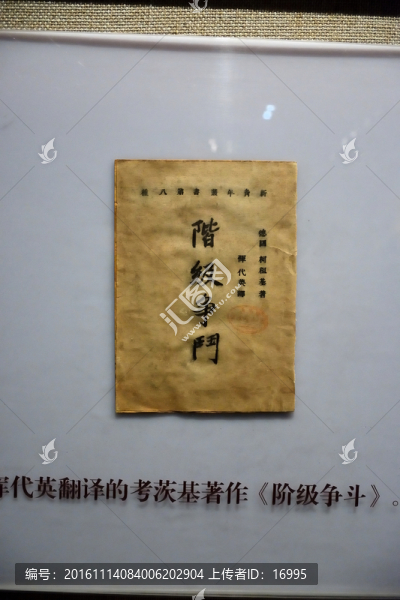 新青年叢書第八種
階級爭鬥
德國 柯祖基著
惲代英譯
恽代英翻译的考茨基著作《阶级争斗》。
汇图网
编号：20161114084006202904 上传者ID：16995